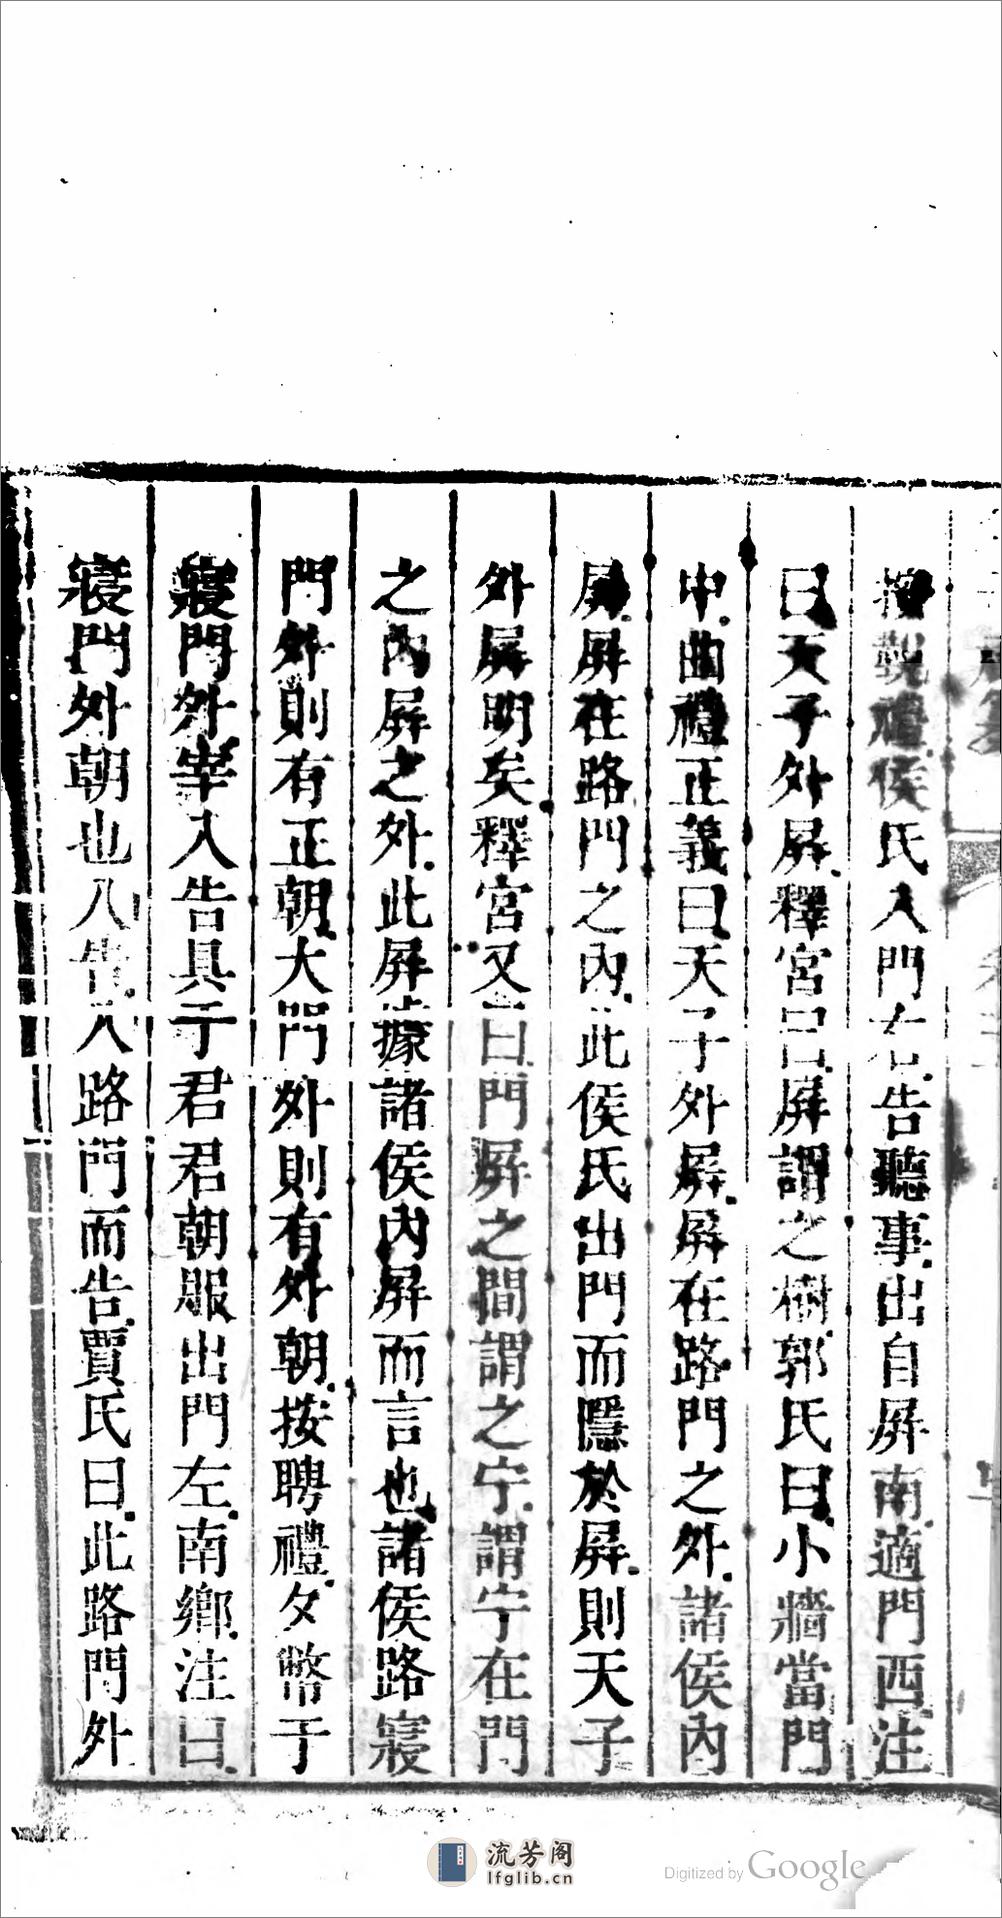 按覲禮侯氏入門右告聽事出自屏南適門西注
曰天子外屏釋宮曰屏謂之樹郭氏曰小牆當門
中曲禮正義曰天子外屏屏在路門之外諸侯內
屏屏在路門之內此侯氏出門而隱於屏則天子
外屏明矣釋宮又曰門屏之間謂之宁謂宁在門
之內屏之外此屏據諸侯內屏而言也諸侯路寢
門外則有正朝大門外則有外朝按聘禮夕幣于
寢門外宰入告具于君君朝服出門左南鄉注曰
寢門外朝也入告入路門而告賈氏曰此路門外
流芳阁
lfglib.cn
Digitized by Google